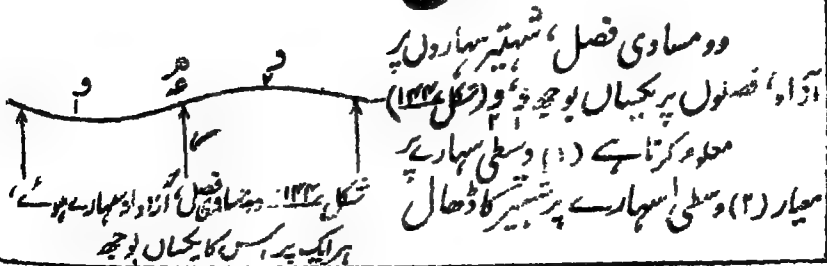 دو مساوی فصل، شہتیر سہاروں پر
آزاد، فصلوں پر یکساں بوجھ و۱، و۲ (شکل ۱۴۴)
معلوم کرنا ہے (۱) وسطی سہارے پر
معیار (۲) وسطی سہارے پر شہتیر کا ڈھال
و۱
و۲
شکل ۱۴۴ دو مساوی فصل، آزاد سہارے ہوئے،
ہر ایک پر اس کا یکساں بوجھ